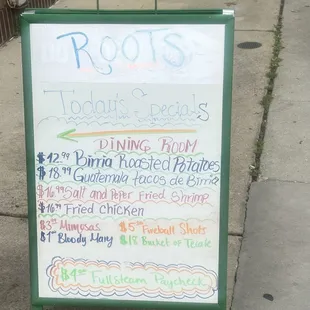 ROOTS
Today's Specials
DINING ROOM
$12.99 Birria Roasted Potatoes
$18.99 Guatemala tacos de Birria
$16.99 Salt and Peper Fried Shrimp
$16.99 Fried Chicken
$3 Mimosas $5 Fireball Shots
Bloody Mary $18 Bucket of
Fullsteam Paycheck